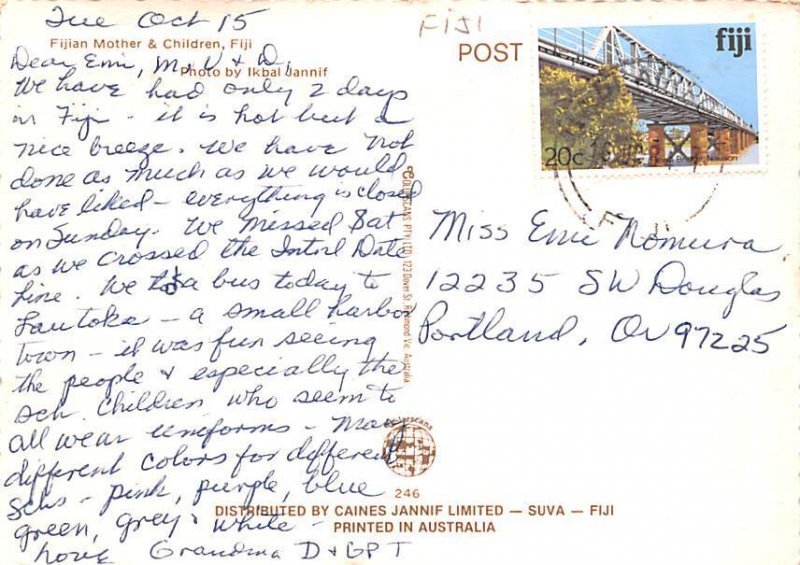 Tue Oct 15
Fijian Mother & Children, Fiji
Photo by Ikbal Jannif
Dear Emi, M, V & D,
We have had only 2 days
in Fiji - it is hot but a
nice breeze. We have not
done as much as we would
have liked - everything is closed
on Sunday. We missed Sat
as we crossed the Intnl Date
line. We a bus today to
Lautoka - a small harbor
town - it was fun seeing
the people & especially the
sch. children who seem to
all wear uniforms - Many
different colors for different
schs - pink, purple, blue
green, grey & white -
Love Grandma D & GPT
COLORSCANS PTY LTD, 123 Dover St. Richmond Vic. Australia
colorscans
246
DISTRIBUTED BY CAINES JANNIF LIMITED — SUVA — FIJI
PRINTED IN AUSTRALIA
FIJI
POST
fiji
20c Bridge, Nausori
FIJI
Miss Emi Nomura
12235 SW Douglas
Portland, Or 97225